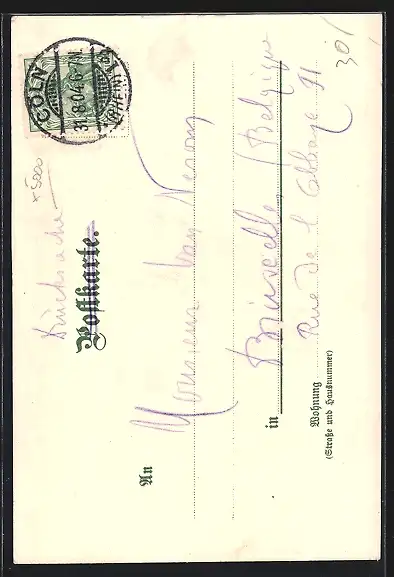 CÖLN
31.8.04.6-7N.
(RHEIN)
* 5000
Drucksache
Postkarte.
An Monsieur Van
in Bruxelles (Belgique
Wohnung Rue de l'Abbaye 71
(Straße und Hausnummer)
30/